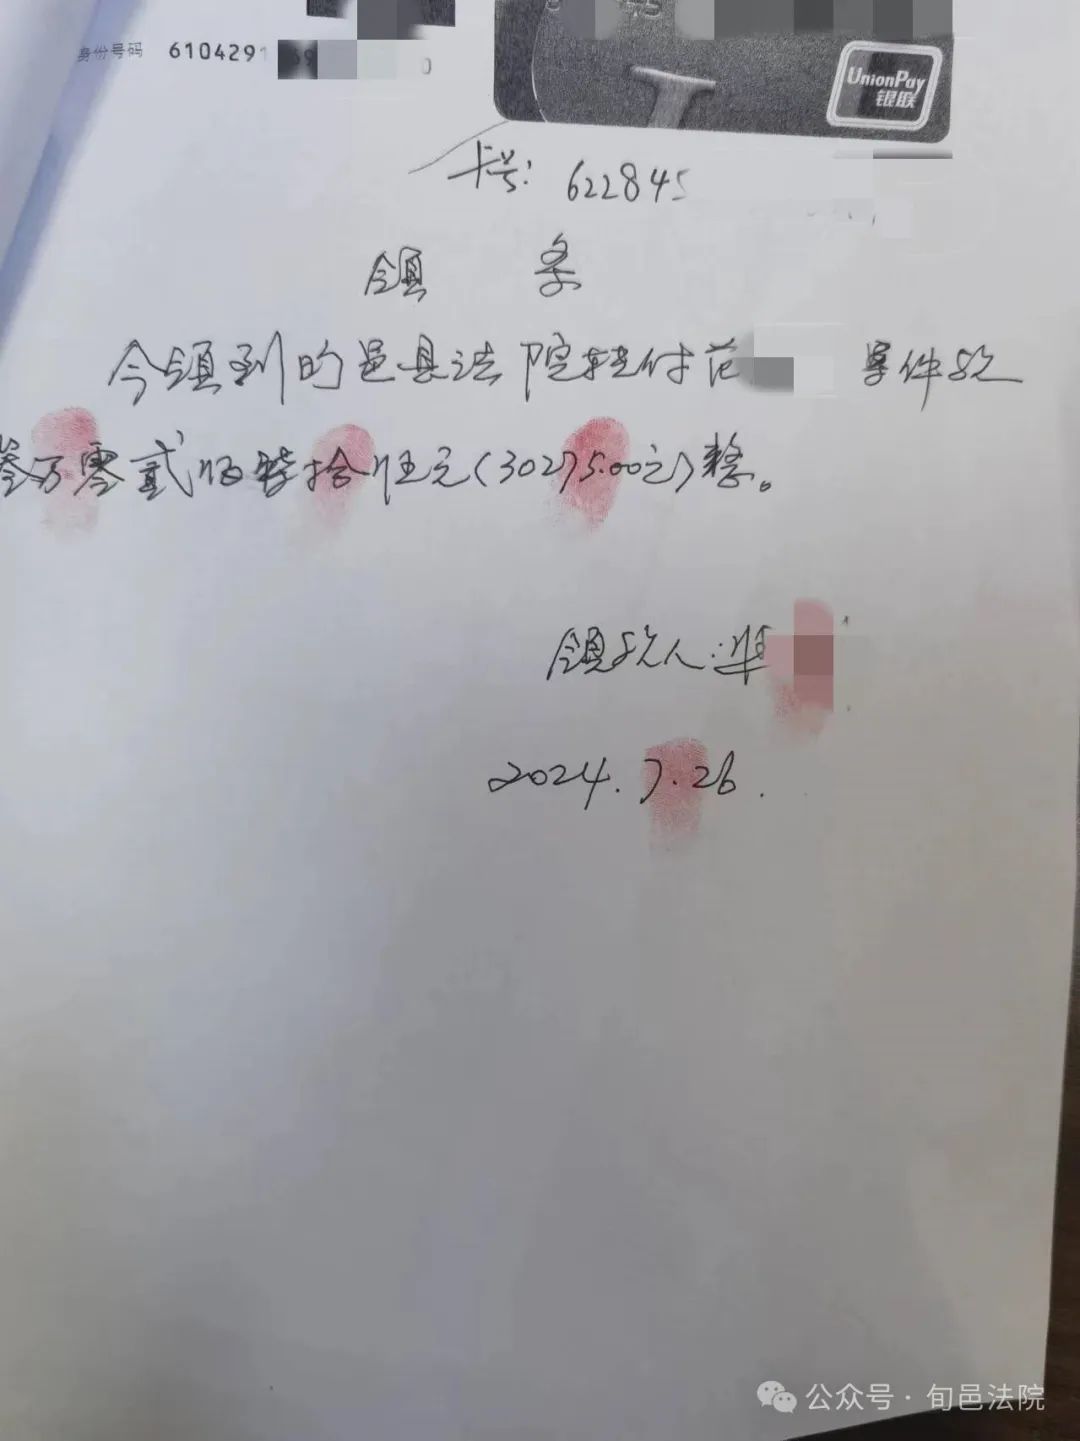 身份号码 6104291
UnionPay
银联
卡号: 622845
领 条
今领到旬邑县法院转付范 案件款
叁万零贰佰柒拾伍元(30275.00元)整。
领款人:
2024.7.26.
公众号·旬邑法院